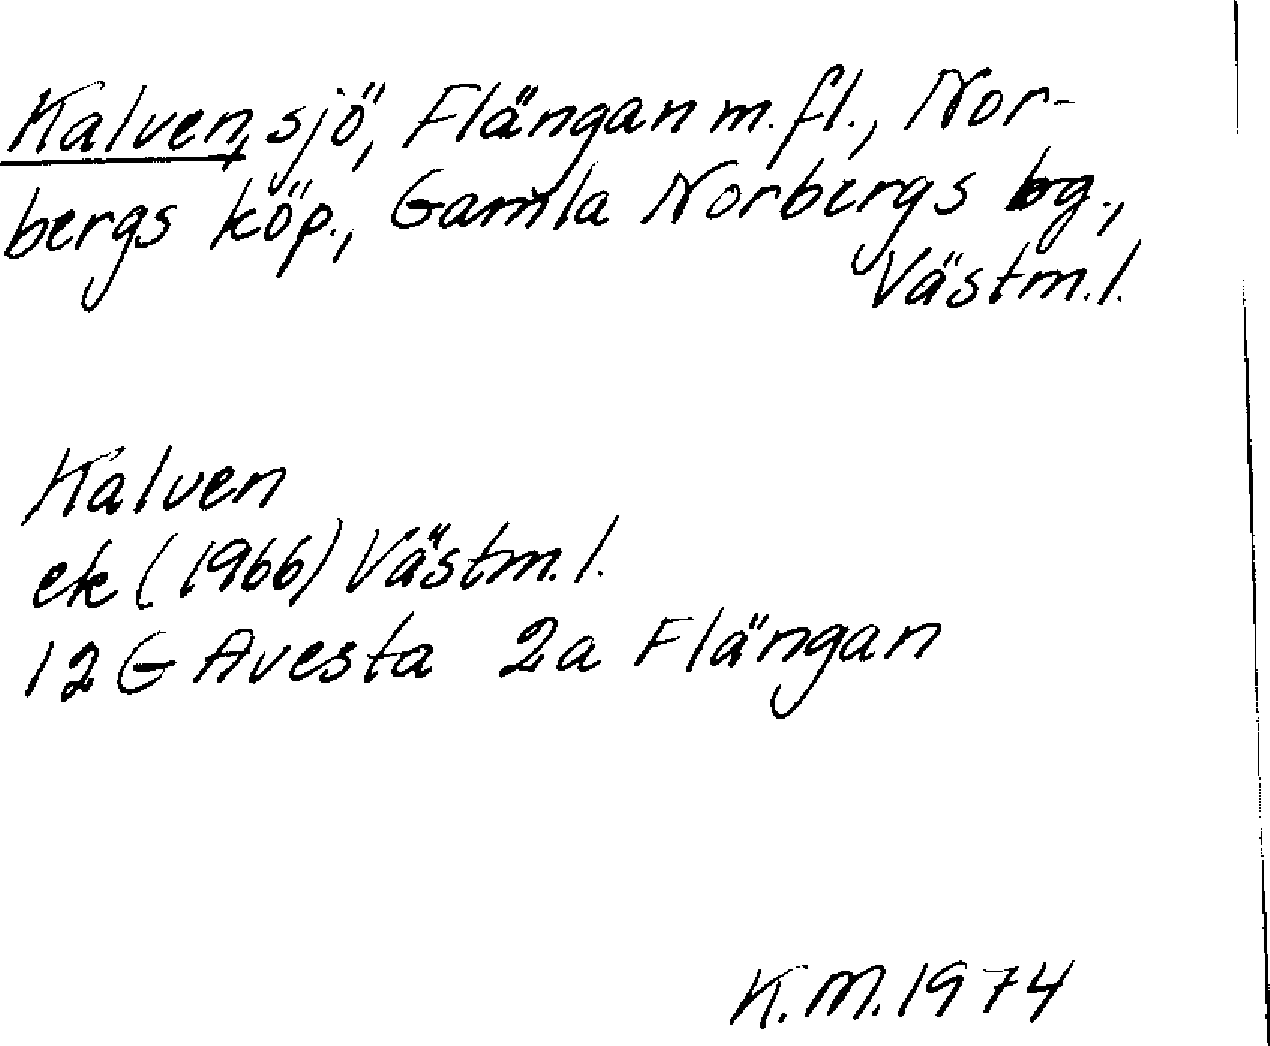 Kalven, sjö, Flängan m.fl., Nor-
bergs köp., Gamla Norbergs bg.,
Västm.l.
Kalven
ek (1966) Västm.l.
12G Avesta 2a Flängan
K.M. 1974